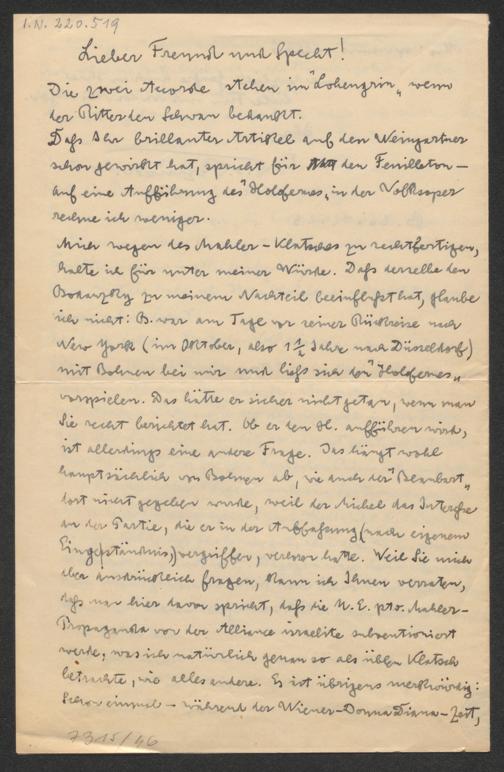 I.N. 220.519
Lieber Freund und Specht!
Die zwei Akkorde stehen im "Lohengrin", wenn
der Ritter den Schwan bedankt.
Daſs Ihr brillanter Artikel auf den Weingartner
schon gewirkt hat, spricht für den Feuilleton –
auf eine Aufführung des "Holofernes" in der Volksoper
rechne ich weniger.
Mich wegen des Mahler-Klatsches zu rechtfertigen,
halte ich für unter meiner Würde. Daſs derselbe den
Bodanzky zu meinem Nachteil beeinfluſst hat, glaube
ich nicht: B. war am Tage vor seiner Rückreise nach
New York (im Oktober, also 1 1/2 Jahre nach Düsseldorf)
mit Bohnen bei mir und lieſs sich den "Holofernes"
vorspielen. Das hätte er sicher nicht getan, wenn man
Sie recht berichtet hat. Ob er den H. aufführen wird,
ist allerdings eine andere Frage. Das hängt wohl
hauptsächlich von Bohnen ab, wie auch der "Blaubart"
dort nicht gegeben wurde, weil der Michel das Interesse
an der Partie, die er in der Auffassung (nach eigenem
Eingeständnis) vergriffen, verloren hatte. Weil Sie mich
aber ausdrücklich fragen, kann ich Ihnen verraten,
daſs man hier davon spricht, daſs die U.E. pto. Mahler-
Propaganda von der Alliance israelite subventioniert
werde, was ich natürlich genau so als üblen Klatsch
betrachte, wie alles andere. Es ist übrigens merkwürdig:
Schon einmal – während der Wiener-Donna Diana-Zeit,
7315/46